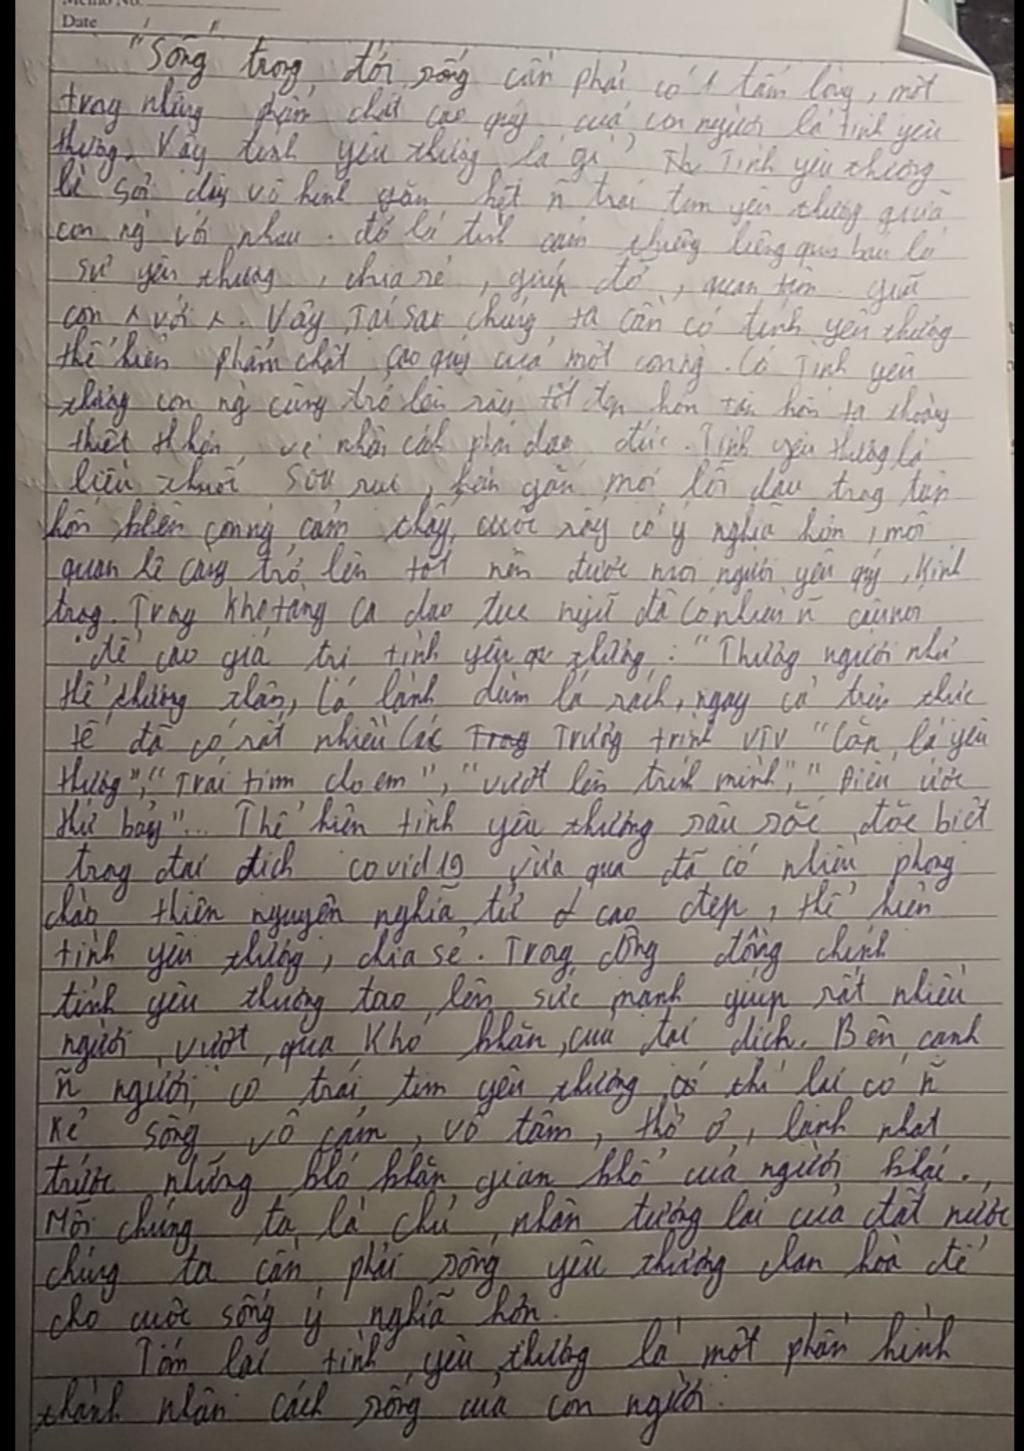 Memo No.
Date
"Sống trong đời sống cần phải có 1 tấm lòng, một
trong những phẩm chất cao quý của con người là tình yêu
thương. Vậy tình yêu thương là gì? Tình yêu thương
là sợi dây vô hình gắn kết ñ trái tim yêu thương giữa
con ng với nhau. đó là tình cảm thiêng liêng quý báu là
sự yêu thương, chia sẻ, giúp đỡ, quan tâm giữa
con ʌ với ʌ. Vậy Tại sao chúng ta cần có tình yêu thương
thể hiện phẩm chất cao quý của một con ng. Có Tình yêu
thương con ng cũng trở lên tốt đẹp hơn tâm hồn ta
thiệt về nhân cách phải đạo đức. Tình yêu thương là
liều thuốc hàn gắn mọi lỗi đau trong tâm
hồn khiến con ng cảm thấy cuộc sống có ý nghĩa hơn, mối
quan hệ càng trở lên tốt nên được mọi người yêu quý, kính
trọng. Trong kho tàng ca dao tục ngữ đã có nhiều ñ câu nói
đề cao giá trị tình yêu thương: "Thương người như
thể thương thân, Lá lành đùm lá rách, ngay cả trên thực
tế đã có rất nhiều các Trường trình VTV "Cặp lá yêu
thương", "Trái tim cho em", "vượt lên trính mình", "Điều ước
thứ bảy"... Thể hiện tình yêu thương sâu sắc, đặc biệt
trong đại dịch covid 19 vừa qua đã có nhiều phong
chào thiên nguyên nghĩa tử cao đẹp, thể hiện
tình yêu thương, chia sẻ. Trong cộng đồng chính
tình yêu thương tạo lên sức mạnh giúp rất nhiều
người vượt qua khó khăn của đại dịch. Bên cạnh
ñ người có trái tim yêu thương thì lại có ñ
kẻ sống vô cảm, vô tâm, thờ ơ, lạnh nhạt
trước những khó khăn gian khổ của người khác.
Mỗi chúng ta là chủ nhân tương lai của đất nước
chúng ta cần phải sống yêu thương chan hoà để
cho cuộc sống ý nghĩa hơn.
Tóm lại tình yêu thương là một phần hình
thành nhân cách sống của con người.